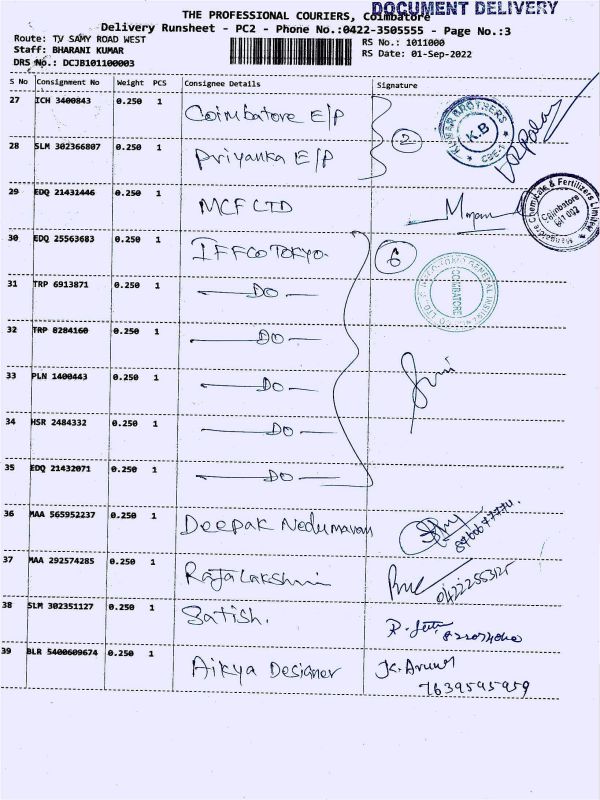 DOCUMENT DELIVERY
THE PROFESSIONAL COURIERS, Coimbatore
Delivery Runsheet - PC2 - Phone No.:0422-3505555 - Page No.:3
Route: TV SAMY ROAD WEST
RS No.: 1011000
Staff: BHARANI KUMAR
RS Date: 01-Sep-2022
DRS No.: DCJB101100003
S No Consignment No Weight PCS Consignee Details Signature
27 ICH 3400843 0.250 1 Coimbatore E/P
KUMAR BROTHERS K.B CBE-1
28 SLM 302366807 0.250 1 Priyanka E/P 2
29 EDQ 21431446 0.250 1 MCF LTD
Mangalore Chemicals & Fertilizers Limited Coimbatore 641 002
30 EDQ 25563683 0.250 1 IFFCO TOKYO. 6
COIMBATORE
31 TRP 6913871 0.250 1 — DO —
32 TRP 8284160 0.250 1 — DO —
33 PLN 1400443 0.250 1 — DO —
34 HSR 2484332 0.250 1 — DO —
35 EDQ 21432071 0.250 1 — DO —
36 MAA 565952237 0.250 1 Deepak Nedumaran
37 MAA 292574285 0.250 1 Rajalakshmi
38 SLM 302351127 0.250 1 Satish.
39 BLR 5400609674 0.250 1 Aikya Designer
7639595959